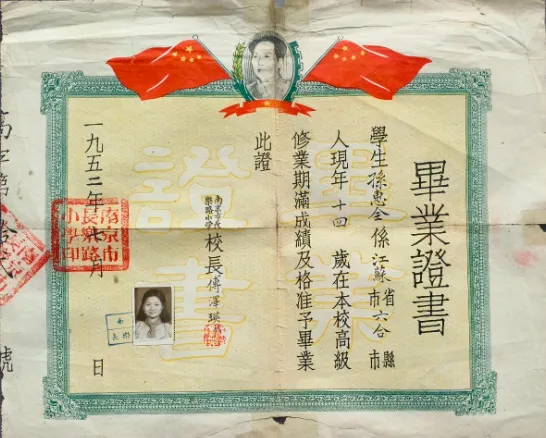 畢業證書
學生孫惠全係江蘇省市六合縣市
人現年十四歲在本校高級
修業期滿成績及格准予畢業
此證
南京市長樂路小學校長傅澤瑛
一九五二年 月 日
南京市
長樂路
小學印
高字第 號
畢業
證書